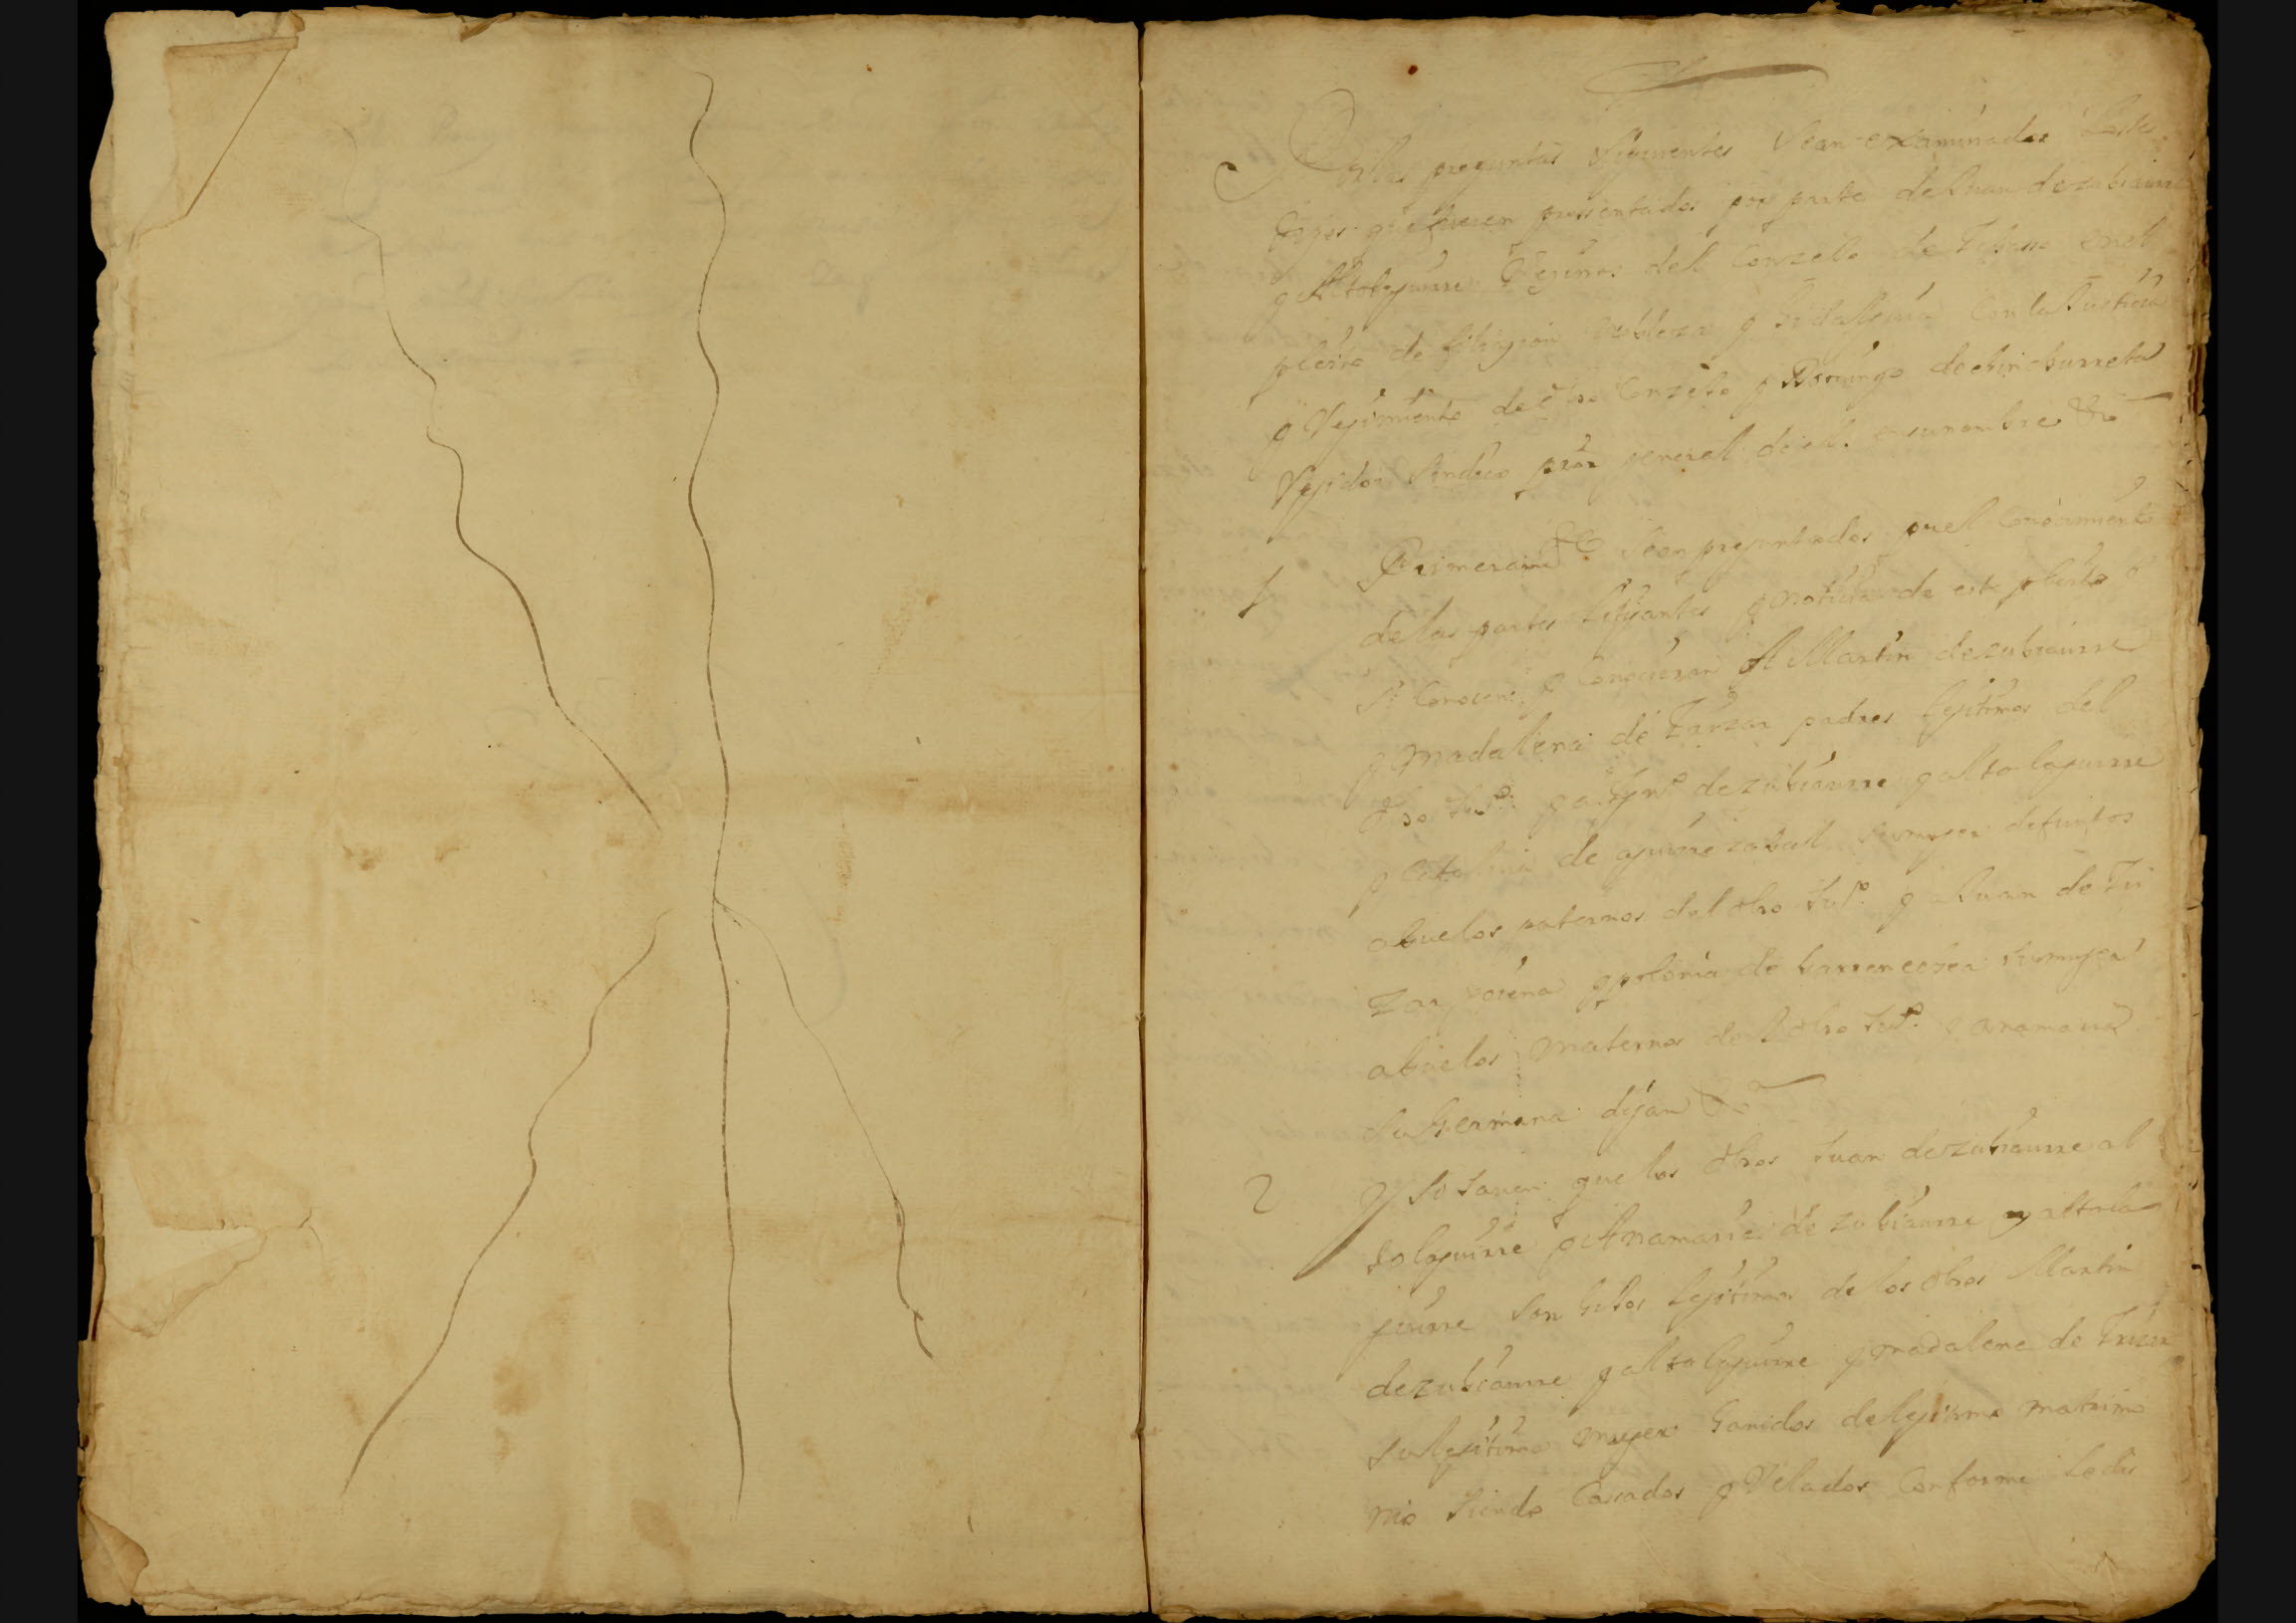 Por las preguntas siguientes sean examinados los tes
tigos q̃ fueren pressentados por parte de Juan de zubiaurre
y Altolaguirre Vezinos del Conzejo de en el
pleito de filiaçion nobleza y hidalguia Con la Justicia
y Regimiento de dho Conzejo y Domingo de churreta
Regidor Sindico pror general de el. en su nombre &a
1 Primeramte sean preguntados por el Conocimiento
de las partes litigantes y noticia de este pleito e
si Conocen y Conocieron A Martin de zubiaurre
y Madalena de Yarza padres legitimos del
dho Juº. y a de zubiaurre y altolaguirre
y Catalina de aguirrezabal su muger defuntos
abuelos paternos del dho Juº. y a Juan de Yri
zar y polonia de barrenechea su muger
abuelos maternos del dho Juº. y anamaria
su hermana digan &a
2 Y si saven que los dhos Juan de zubiaurre al
tolaguirre y Anamaria de zubiaurre y altola
guirre son hijos legitimos de los dhos Martin
de zubiaurre y altolaguirre y madalena de Yrizar
su legitima muger havidos de legitimo matrimo
nio siendo Cassados y Velados Conforme